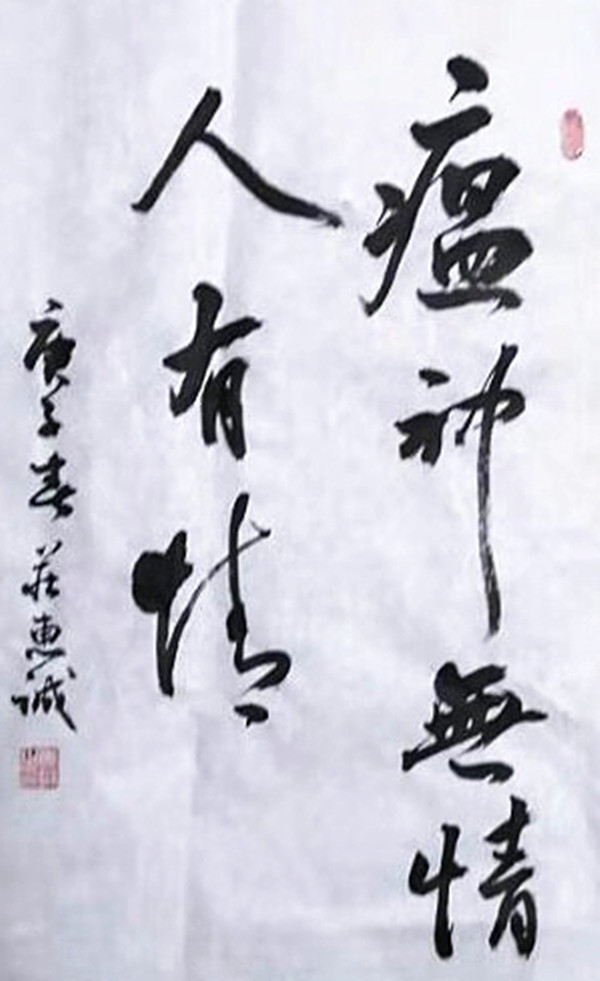 瘟神無情
人有情
庚子春 莊惠诚